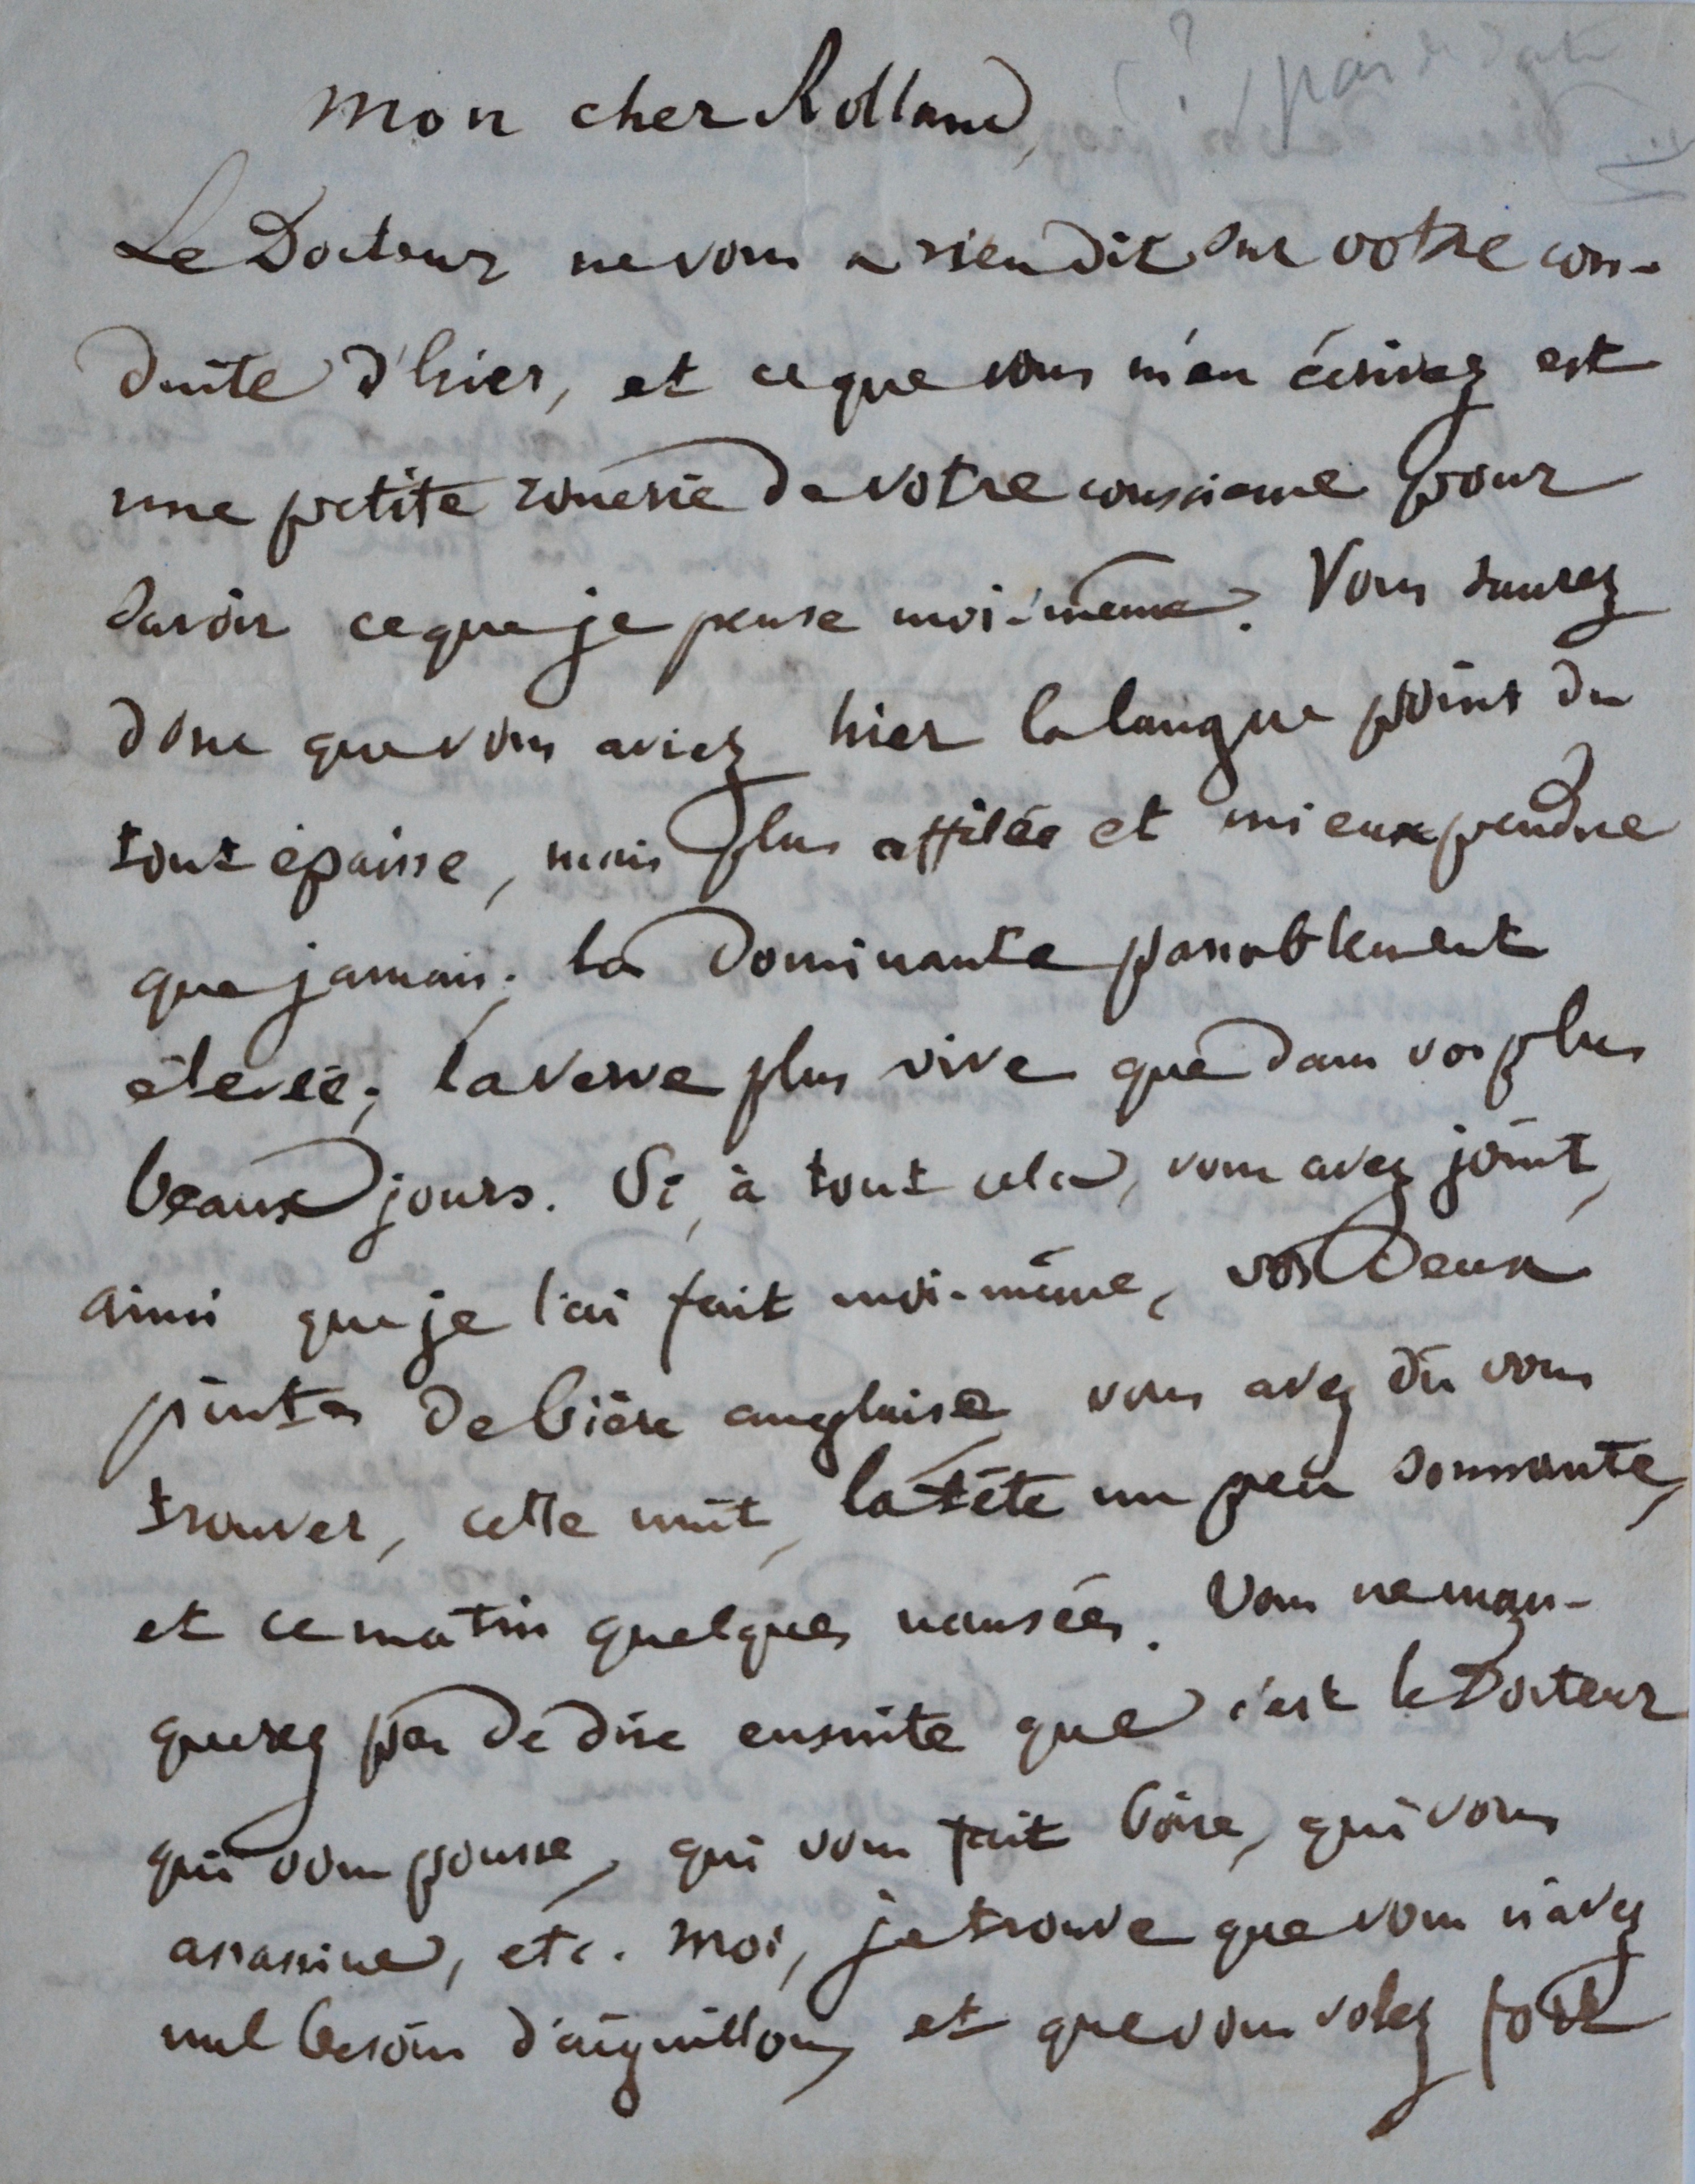 pas de date
Mon cher Rolland,
Le Docteur ne vous a rien dit sur votre con-
duite d'hier, et ce que vous m'en écrivez est
une petite rouerie de votre conscience pour
savoir ce que je pense moi-même. Vous saurez
donc que vous aviez hier la langue point du
tout épaisse, mais plus affilée et mieux pendue
que jamais; la dominante passablement
élevée; la verve plus vive que dans vos plus
beaux jours. Si, à tout cela, vous avez joint,
ainsi que je l'ai fait moi-même, vos deux
pintes de bière anglaise, vous avez dû vous
trouver, cette nuit, la tête un peu sonnante,
et ce matin quelques nausées. Vous ne man-
querez pas de dire ensuite que c'est le Docteur
qui vous pousse, qui vous fait boire, qui vous
assassine, etc. Moi, je trouve que vous n'avez
nul besoin d'aiguillon, et que vous volez fort